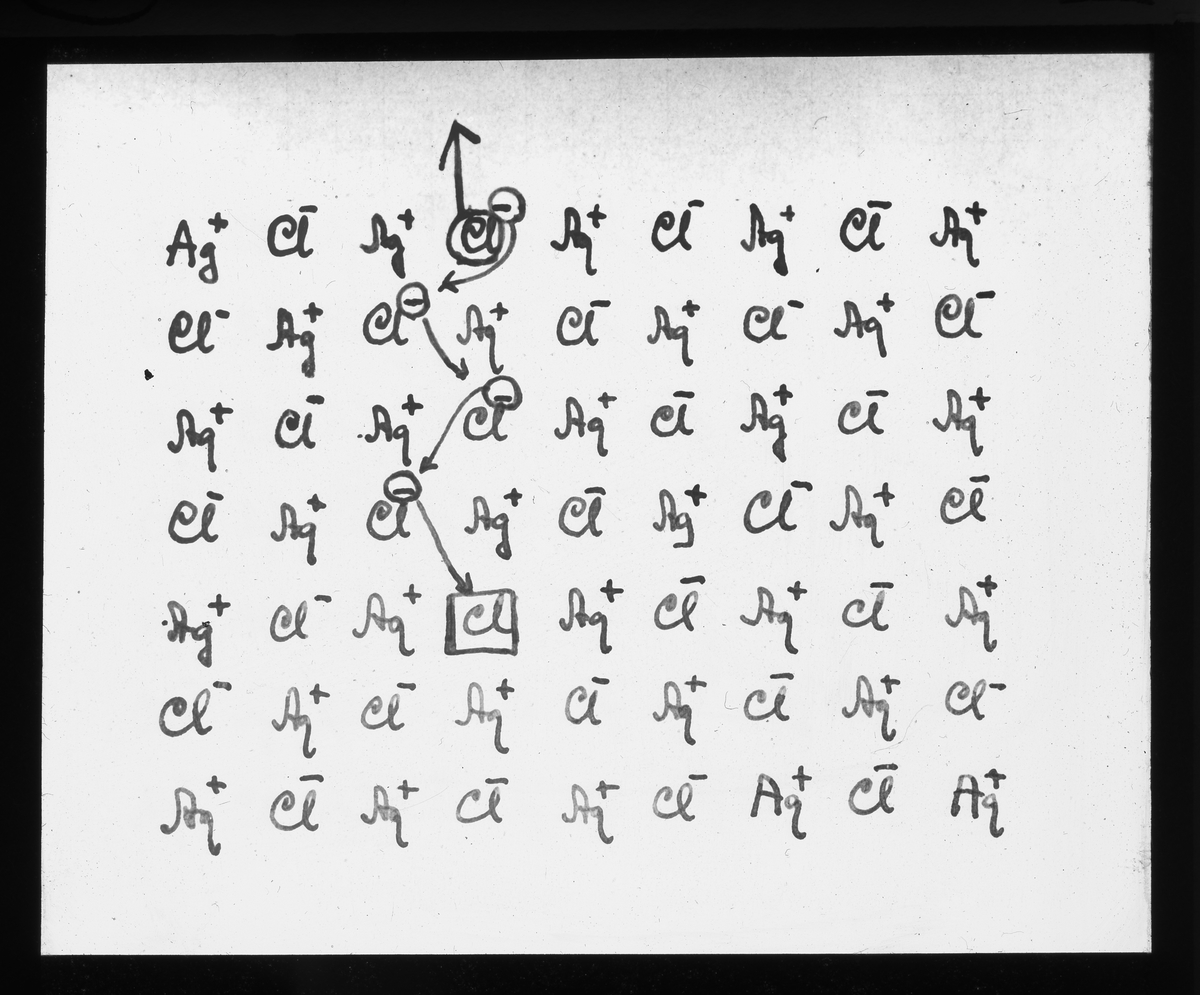 Ag⁺ Cl⁻ Ag⁺ Cl⁻ Ag⁺ Cl⁻ Ag⁺ Cl⁻ Ag⁺
Cl⁻ Ag⁺ Cl⁻ Ag⁺ Cl⁻ Ag⁺ Cl⁻ Ag⁺ Cl⁻
Ag⁺ Cl⁻ Ag⁺ Cl⁻ Ag⁺ Cl⁻ Ag⁺ Cl⁻ Ag⁺
Cl⁻ Ag⁺ Cl⁻ Ag⁺ Cl⁻ Ag⁺ Cl⁻ Ag⁺ Cl⁻
Ag⁺ Cl⁻ Ag⁺ Cl Ag⁺ Cl⁻ Ag⁺ Cl⁻ Ag⁺
Cl⁻ Ag⁺ Cl⁻ Ag⁺ Cl⁻ Ag⁺ Cl⁻ Ag⁺ Cl⁻
Ag⁺ Cl⁻ Ag⁺ Cl⁻ Ag⁺ Cl⁻ Ag⁺ Cl⁻ Ag⁺